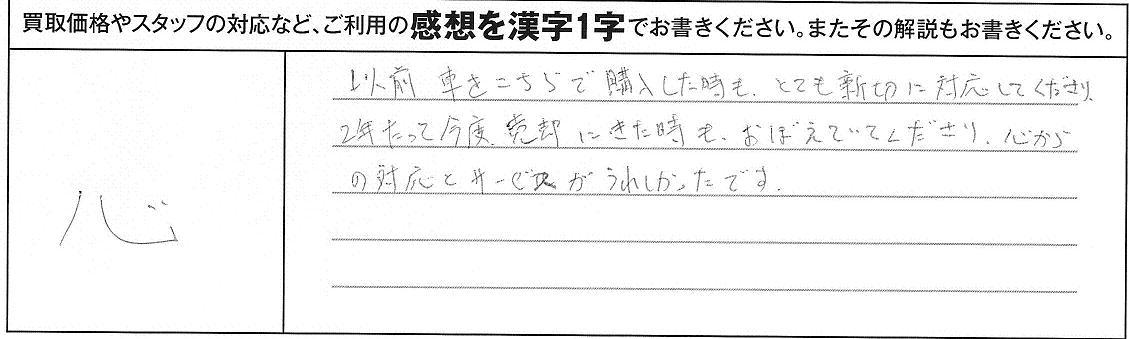 買取価格やスタッフの対応など、ご利用の感想を漢字1字でお書きください。またその解説もお書きください。
心
以前 車をこちらで購入した時も、とても新切に対応してくださり、
2年たって今度、売却にきた時も、おぼえていてくださり、心から
の対応とサービスがうれしかったです。